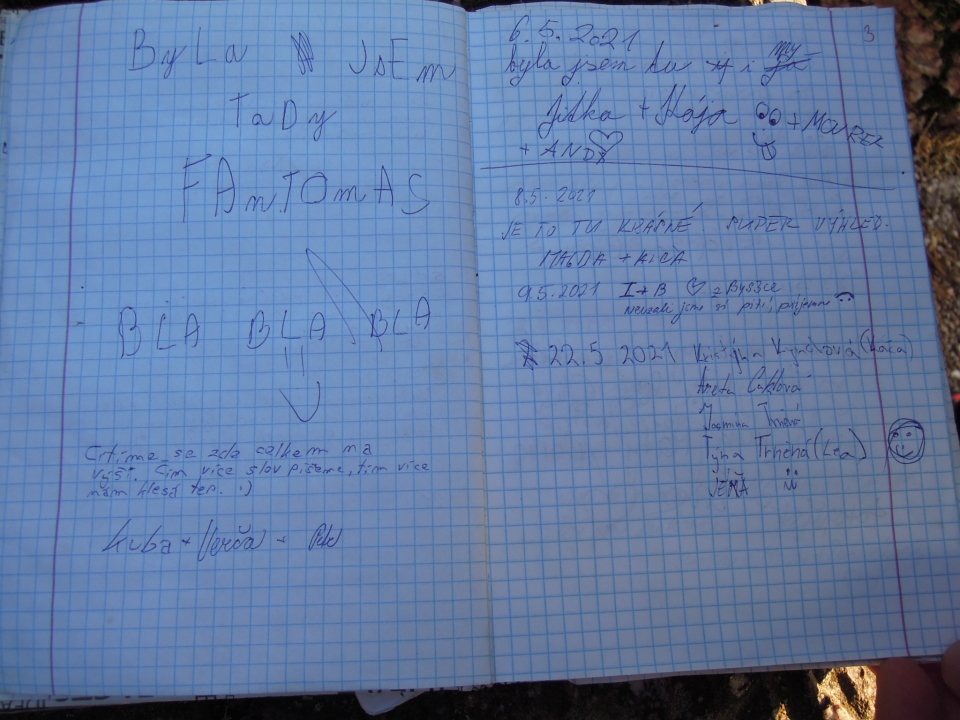 ByLa JsEm
TaDy
FAnTOmAS
BLA BLA BLA
Crtime se zda celkem na
výši. Čím více slov píšeme, tím více
nám klesá ten. :)
Kuba + Verča +
3
6.5.2021
byla jsem tu i my
Jitka + Kája + MOUREK
+ ANDY
8.5.2021
JE TO TU KRÁSNÉ. SUPER VÝHLED.
MAGDA +
9.5.2021 I+B z Byšic
Nevzali jsme si pití,
22.5 2021 Kristýna (Káča)
Aneta
Jasmina
Týna Trnčná (Lea)